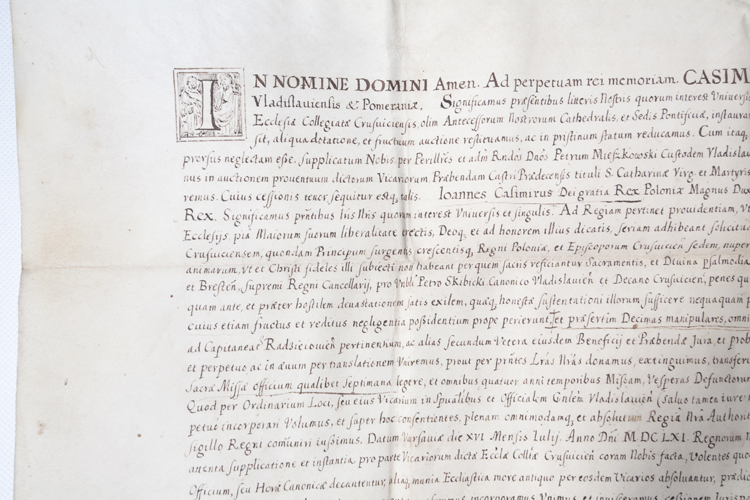 IN NOMINE DOMINI Amen. Ad perpetuam rei memoriam. CASIM
Vladislaviensis & Pomeraniæ. Significamus præsentibus litteris Nostris quorum interest Universis
Ecclesiæ Collegiatæ Crusuiciensis, olim Antecessorum Nostrorum Cathedralis, et Sedis Pontificiæ, instauran
sit, aliqua dotatione, et fructuum auctione restituamus, ac in pristinum statum reducamus. Cum itaq
prorsus neglectam esse. supplicatum Nobis per Perillres et adm Rndos Dnos Petrum Mieszkowski Custodem Vladislav
nus in auctionem proventuum dictorum Vicariorum Præbendam Castri Prædecensis tituli S. Catharinæ Virg. et Martyris
remus. Cuius cessionis tenor sequitur estq talis. Ioannes Casimirus Dei gratia Rex Poloniæ Magnus Dux
Rex. Significamus prntibus lris Nris quorum interest Universis et singulis. Ad Regiam pertinet providentiam, Vt
Ecclesijs, pia Maiorum suorum liberalitate erectis, Deoq, et ad honorem illius dicatis, seriam adhibeant solicitu
Crusuiciensem, quondam Principum surgentis crescentisq, Regni Poloniæ, et Episcoporum Crusuicien sedem, nuper
animarum, Vt et Christi fideles illi subiecti non habeant per quem sacris reficiantur Sacramentis, et Divina psalmodia
et Bresten, Supremi Regni Cancellarij, pro Vnbli Petro Skibicki Canonico Vladislavien et Decano Crusuicien, penes qu
quam ante, et præter hostilem devastationem satis exilem, quæq honestæ sustentationi illorum sufficere nequaquam p
cuius etiam fructus et reditus negligentia possidentium prope perierunt et præsertim Decimas manipulares, omni
ad Capitaneat Radsieiovien pertinentium, ac alias secundum Vetera eiusdem Beneficij et Præbendæ Jura, et prob
et perpetuo ac in ævum per translationem Vniremus, prout per prntes Lras Nras donamus, extinguimus, transferi
Sacræ Missæ officium qualibet Septimana legere, et omnibus quatuor anni temporibus Missam, Vesperas Defunctorum
Quod per Ordinarium Loci, seu eius Vicarium in Spualibus et Officialem Gnlem Vladislavien (salvo tamen iure
petuo incorporari Volumus, et super hoc consentientes, plenam omnimodamq, et absolutam Regia Nra Authorit
sigillo Regni communiri iussimus. Datum Varsaviæ die XVI Mensis Iulij. Anno Dni M DC LXI. Regnorum
anenta supplicatione et instantia, pro parte Vicariorum dictæ Eccla Collta Crusuicien coram Nobis facta, Volentes quo
Officium, seu Horæ Canonicæ decantentur, aliaq munia Ecclastica more antiquo per eosdem Vicarios absoluantur, prædic
incorporamus Vnimus et inuisceramus cessionem Juris